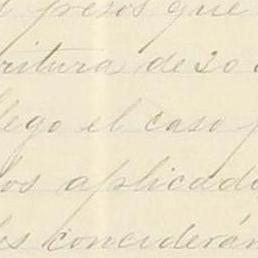 presos que
ritura de 20
llego el caso
los aplicad
les conciderán